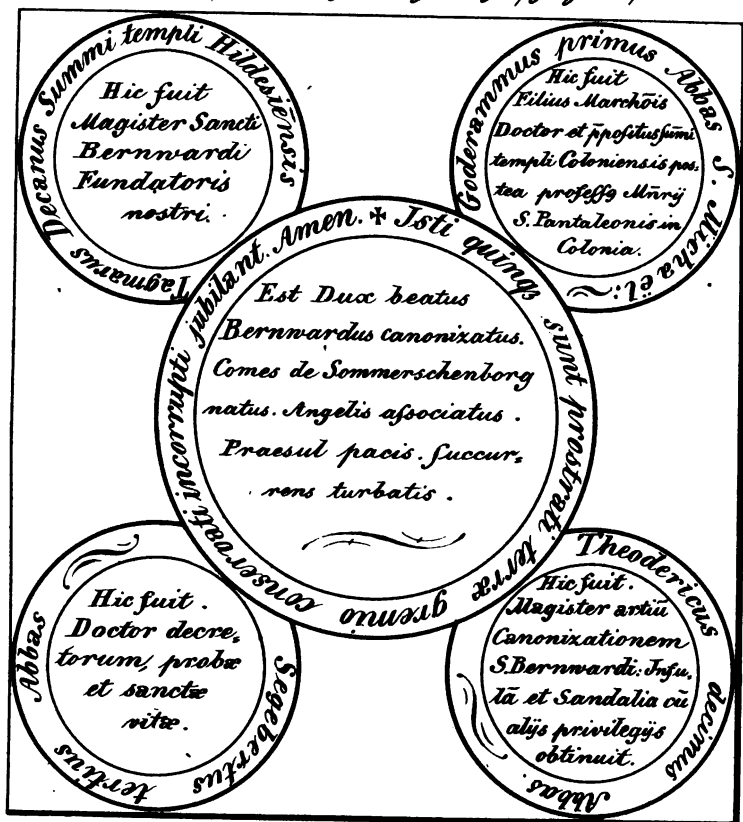 Tagmarus Decanus Summi templi Hildesiēnsis
Hic fuit
Magister Sancti
Bernwardi
Fundatoris
nostri.
Goderammus primus Abbas S. Michaël:
Hic fuit
Filius Marchōis
Doctor et p̄positus sum̄i
templi Coloniensis pos:
tea professꝯ Mn̄rij
S. Pantaleonis in
Colonia.
✠ Isti quinqȝ sunt prostrati terræ gremio conservati incorrupti jubilant. Amen.
Est Dux beatus
Bernwardus canonizatus.
Comes de Sommerschenborg
natus. Angelis aſsociatus.
Praesul pacis. Succur=
rens turbatis.
Segebertus tertius Abbas
Hic fuit.
Doctor decre=
torum, probæ
et sanctæ
vitæ.
Theodericus decimus Abbas.
Hic fuit.
Magister artiū
Canonizationem
S. Bernwardi: Infu=
lā et Sandalia cū
alijs privilegijs
obtinuit.